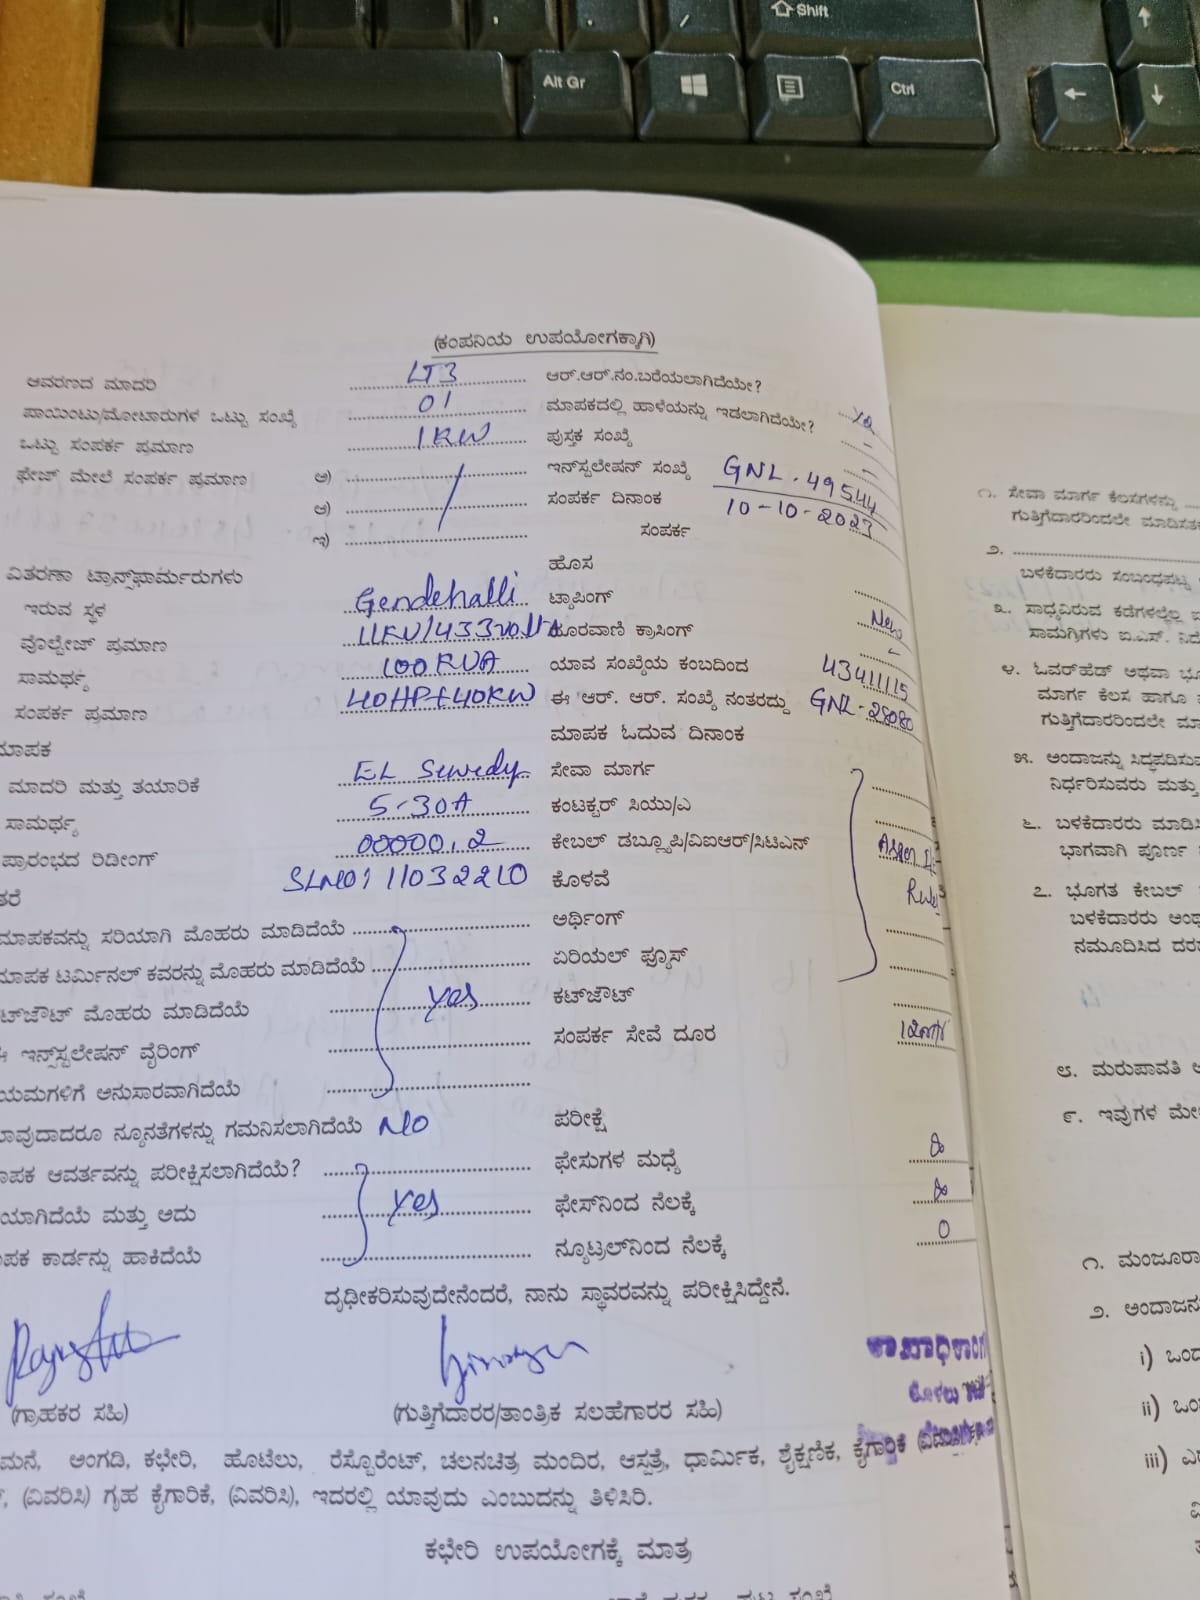 Shift
Alt Gr
Ctrl
(ಕಂಪನಿಯ ಉಪಯೋಗಕ್ಕಾಗಿ)
ಆವರಣದ ಮಾದರಿ LT3 ಆರ್.ಆರ್.ನಂ.ಬರೆಯಲಾಗಿದೆಯೇ?
ಪಾಯಿಂಟು/ಮೋಟಾರುಗಳ ಒಟ್ಟು ಸಂಖ್ಯೆ 01 ಮಾಪಕದಲ್ಲಿ ಹಾಳೆಯನ್ನು ಇಡಲಾಗಿದೆಯೇ?
ಒಟ್ಟು ಸಂಪರ್ಕ ಪ್ರಮಾಣ 1KW ಪುಸ್ತಕ ಸಂಖ್ಯೆ -
ಫೇಜ್ ಮೇಲೆ ಸಂಪರ್ಕ ಪ್ರಮಾಣ ಅ) ಇನ್‌ಸ್ಟಲೇಷನ್ ಸಂಖ್ಯೆ GNL.49544
ಆ) ಸಂಪರ್ಕ ದಿನಾಂಕ 10-10-2023
ಇ) ಸಂಪರ್ಕ
ವಿತರಣಾ ಟ್ರಾನ್ಸ್‌ಫಾರ್ಮರುಗಳು ಹೊಸ
ಇರುವ ಸ್ಥಳ Gendehalli ಟ್ಯಾಪಿಂಗ್ New
ವೊಲ್ಟೇಜ್ ಪ್ರಮಾಣ 11KV/433volts ದೂರವಾಣಿ ಕ್ರಾಸಿಂಗ್ -
ಸಾಮರ್ಥ್ಯ 100KVA ಯಾವ ಸಂಖ್ಯೆಯ ಕಂಬದಿಂದ 43411115
ಸಂಪರ್ಕ ಪ್ರಮಾಣ 40HP+40KW ಈ ಆರ್. ಆರ್. ಸಂಖ್ಯೆ ನಂತರದ್ದು GNL-28080
ಮಾಪಕ ಮಾಪಕ ಓದುವ ದಿನಾಂಕ
ಮಾದರಿ ಮತ್ತು ತಯಾರಿಕೆ EL Sewedy ಸೇವಾ ಮಾರ್ಗ
ಸಾಮರ್ಥ್ಯ 5-30A ಕಂಟಕ್ಟರ್ ಸಿಯು/ಎ
ಪ್ರಾರಂಭದ ರಿಡೀಂಗ್ 00000.2 ಕೇಬಲ್ ಡಬ್ಲ್ಯೂಪಿ/ವಿಐಆರ್/ಸಿಟಿಎನ್
SLNO: 11032210 ಕೊಳವೆ
ಮಾಪಕವನ್ನು ಸರಿಯಾಗಿ ಮೊಹರು ಮಾಡಿದೆಯೆ ಅರ್ಥಿಂಗ್
ಮಾಪಕ ಟರ್ಮಿನಲ್ ಕವರನ್ನು ಮೊಹರು ಮಾಡಿದೆಯೆ ಏರಿಯಲ್ ಫ್ಯೂಸ್
ಟ್‌ಔಟ್ ಮೊಹರು ಮಾಡಿದೆಯೆ yes ಕಟ್‌ಔಟ್
ಈ ಇನ್ಸ್‌ಸ್ಟಲೇಷನ್ ವೈರಿಂಗ್ ಸಂಪರ್ಕ ಸೇವೆ ದೂರ
ಯಮಗಳಿಗೆ ಅನುಸಾರವಾಗಿದೆಯೆ
ಯಾವುದಾದರೂ ನ್ಯೂನತೆಗಳನ್ನು ಗಮನಿಸಲಾಗಿದೆಯೆ NO ಪರೀಕ್ಷೆ
ಾಪಕ ಆವರ್ತವನ್ನು ಪರೀಕ್ಷಿಸಲಾಗಿದೆಯೆ? ಫೇಸುಗಳ ಮಧ್ಯೆ
ಯಾಗಿದೆಯೆ ಮತ್ತು ಅದು yes ಫೇಸ್‌ನಿಂದ ನೆಲಕ್ಕೆ
ಾಪಕ ಕಾರ್ಡನ್ನು ಹಾಕಿದೆಯೆ ನ್ಯೂಟ್ರಲ್‌ನಿಂದ ನೆಲಕ್ಕೆ 0
ದೃಢೀಕರಿಸುವುದೇನೆಂದರೆ, ನಾನು ಸ್ಥಾವರವನ್ನು ಪರೀಕ್ಷಿಸಿದ್ದೇನೆ.
(ಗ್ರಾಹಕರ ಸಹಿ) (ಗುತ್ತಿಗೆದಾರರ/ತಾಂತ್ರಿಕ ಸಲಹೆಗಾರರ ಸಹಿ)
ಮನೆ, ಅಂಗಡಿ, ಕಛೇರಿ, ಹೊಟೆಲು, ರೆಸ್ಟೊರೆಂಟ್, ಚಲನಚಿತ್ರ ಮಂದಿರ, ಆಸ್ಪತ್ರೆ, ಧಾರ್ಮಿಕ, ಶೈಕ್ಷಣಿಕ, ಕೈಗಾರಿಕೆ
(ವಿವರಿಸಿ) ಗೃಹ ಕೈಗಾರಿಕೆ, (ವಿವರಿಸಿ), ಇದರಲ್ಲಿ ಯಾವುದು ಎಂಬುದನ್ನು ತಿಳಿಸಿರಿ.
ಕಛೇರಿ ಉಪಯೋಗಕ್ಕೆ ಮಾತ್ರ
೧. ಸೇವಾ ಮಾರ್ಗ ಕೆಲಸಗಳನ್ನು
ಗುತ್ತಿಗೆದಾರರಿಂದಲೇ ಮಾಡಿಸತ
೨.
ಬಳಕೆದಾರರು ಸಂಬಂಧಪಟ್ಟ
೩. ಸಾಧ್ಯವಿರುವ ಕಡೆಗಳಲ್ಲೆಲ್ಲ
ಸಾಮಗ್ರಿಗಳು ಐ.ಎಸ್. ನಿ
೪. ಓವರ್‌ಹೆಡ್ ಅಥವಾ ಭೂ
ಮಾರ್ಗ ಕೆಲಸ ಹಾಗೂ
ಗುತ್ತಿಗೆದಾರರಿಂದಲೇ ಮಾ
೫. ಅಂದಾಜನ್ನು ಸಿದ್ಧಪಡಿಸುವ
ನಿರ್ಧರಿಸುವರು ಮತ್ತು
೬. ಬಳಕೆದಾರರು ಮಾಡಿಸಿ
ಭಾಗವಾಗಿ ಪೂರ್ಣ
೭. ಭೂಗತ ಕೇಬಲ್
ಬಳಕೆದಾರರು ಅಂದ
ನಮೂದಿಸಿದ ದರ
೮. ಮರುಪಾವತಿ
೯. ಇವುಗಳ ಮೇ
೧. ಮಂಜೂರಾ
೨. ಅಂದಾಜನ
i) ಒಂದ
ii) ಒಂ
iii) ಎ